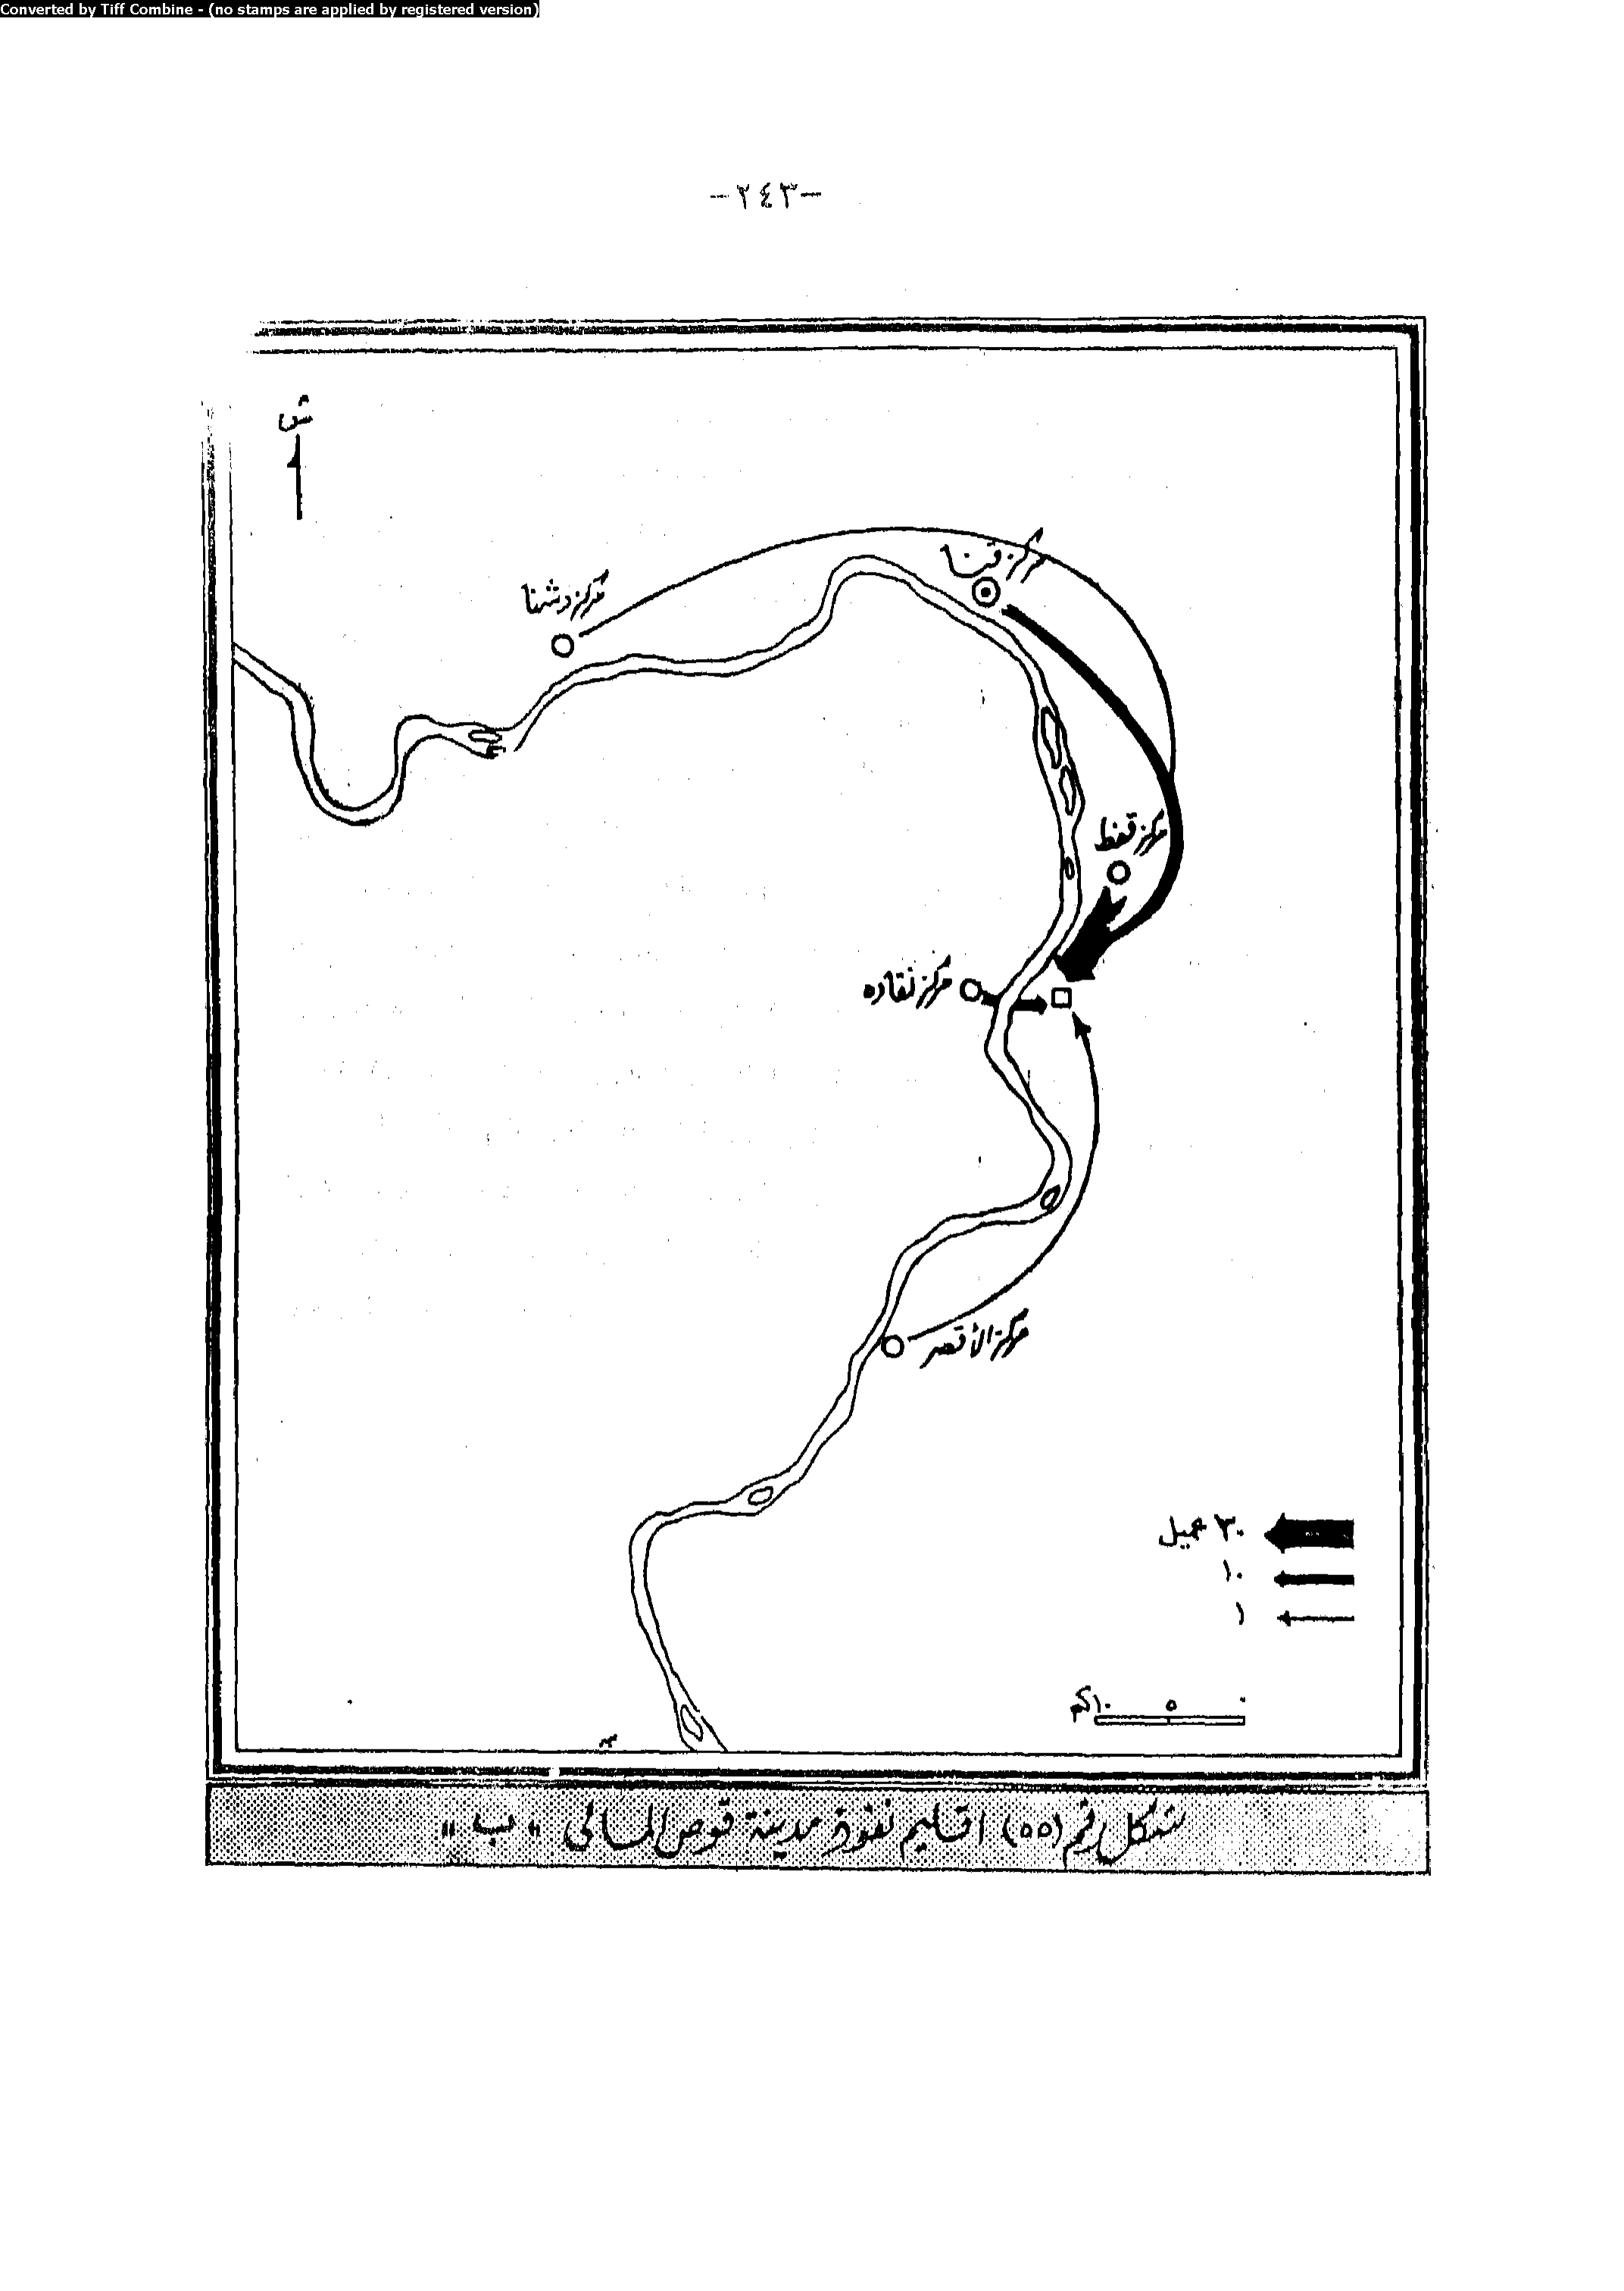 Converted by Tiff Combine - (no stamps are applied by registered version)
-٢٤٣-
ش
مركز قنا
مركز دشنا
مركز قفط
مركز نقاده
مركز الأقصر
٣٠ عميل
١٠
١
١٠كم ٥ ٠
شكل رقم (٥٥) اقليم نفوذ مدينة قوص المالى "ب"